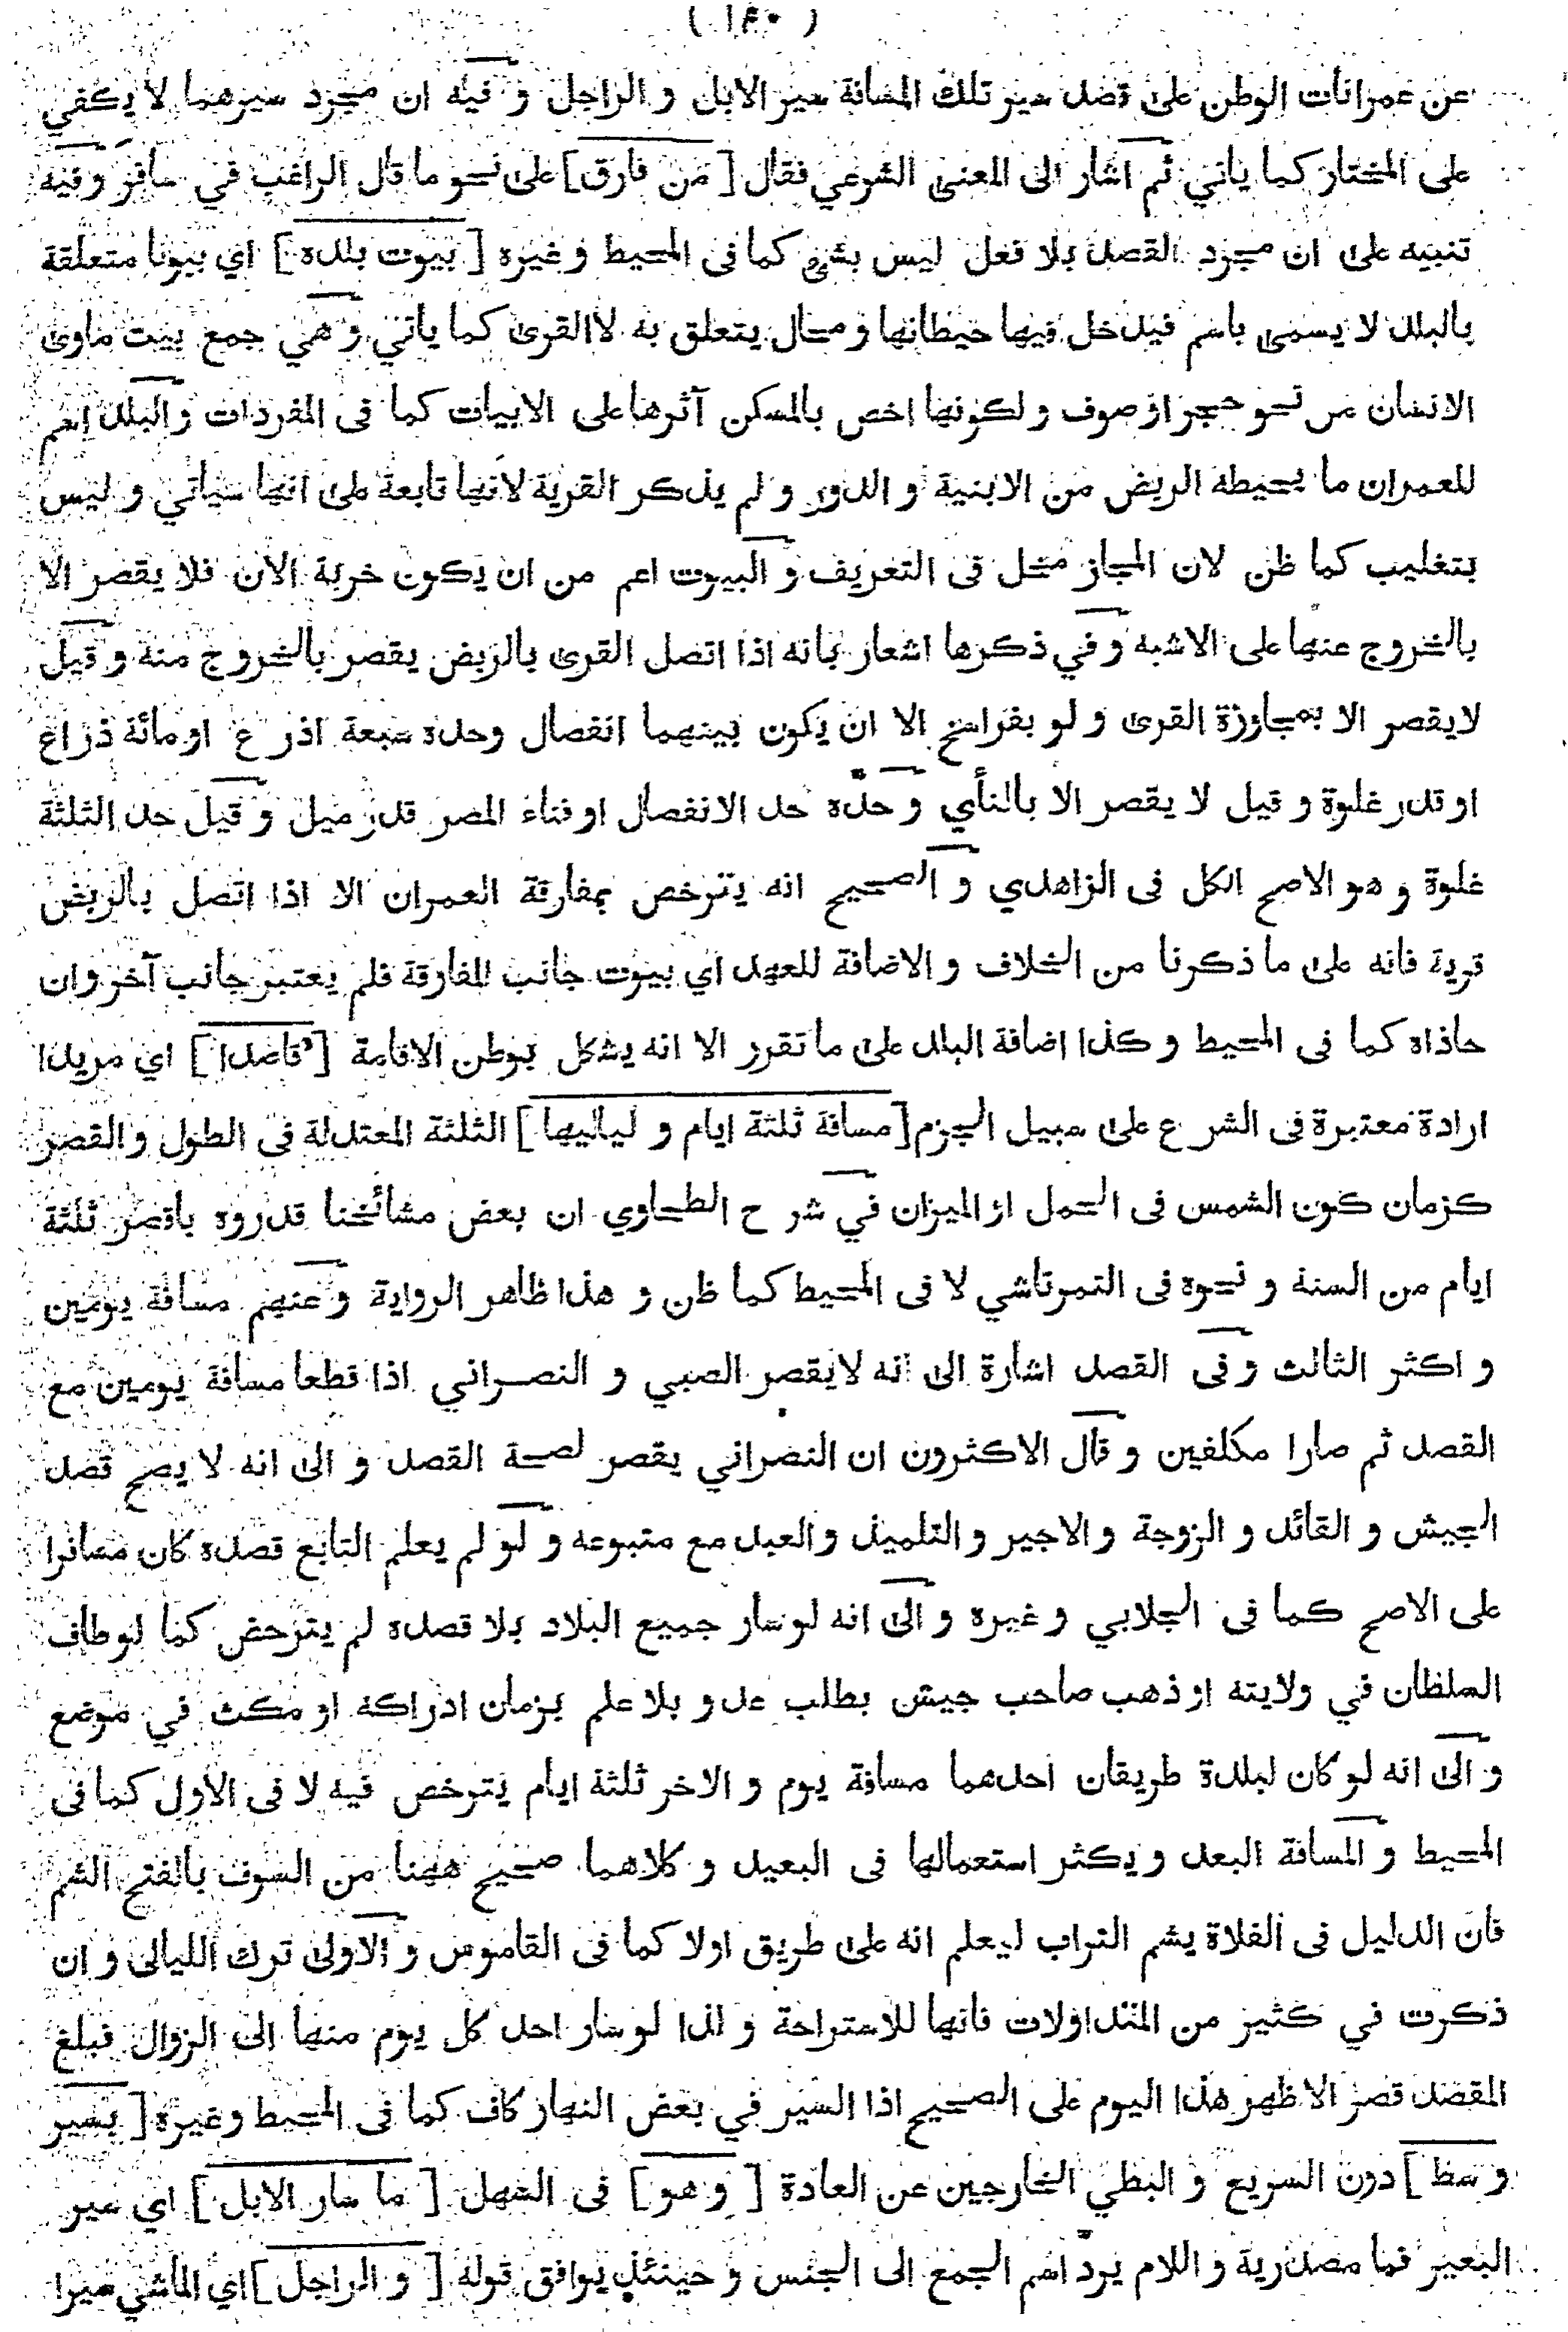 ( ١٤٠ )
عن عمرانات الوطن على قصد سير تلك المسافة سير الابل و الراجل و فيه ان مجرد سيرهما لا يكفي
على المختار كما ياتي ثم اشار الى المعنى الشرعي فقال [ من فارق ] على نحو ما قال الراغب في سافر و فيه
تنبيه على ان مجرد القصد بلا فعل ليس بشئ كما فى المحيط و غيره [ بيوت بلده ] اي بيوتا متعلقة
بالبلد لا يسمى باسم فيدخل فيها حيطانها و محال يتعلق به لا القرى كما ياتي و هي جمع بيت ماوى
الانسان من نحو حجر او صوف و لكونها اخص بالمسكن آثرها على الابيات كما فى المفردات و البلد اسم
للعمران ما يحيطه الربض من الابنية و الدور و لم يذكر القرية لانها تابعة على انها سياتي و ليس
بتغليب كما ظن لان المجاز مخل فى التعريف و البيوت اعم من ان يكون خربة الآن فلا يقصر الا
بالخروج عنها على الاشبه و في ذكرها اشعار بانه اذا اتصل القرى بالربض يقصر بالخروج منه و قيل
لا يقصر الا بمجاوزة القرى و لو بفراسخ الا ان يكون بينهما انفصال وحده سبعة اذرع او مائة ذراع
او قدر غلوة و قيل لا يقصر الا بالنأي و حدّه حد الانفصال او فناء المصر قدر ميل و قيل حد الثلثة
غلوة و هو الاصح الكل فى الزاهدي و الصحيح انه يترخص بمفارقة العمران الا اذا اتصل بالربض
قرية فانه على ما ذكرنا من الخلاف و الاضافة للعهد اي بيوت جانب المفارقة فلم يعتبر جانب آخر و ان
حاذاه كما فى المحيط و كذا اضافة البلد على ما تقرر الا انه يشكل بوطن الاقامة [ قاصدا ] اي مريدا
ارادة معتبرة فى الشرع على سبيل الجزم [ مسافة ثلثة ايام و لياليها ] الثلثة المعتدلة فى الطول و القصر
كزمان كون الشمس فى الحمل او الميزان في شرح الطحاوي ان بعض مشائخنا قدروه باقصر ثلثة
ايام من السنة و نحوه فى التمرتاشي لا فى المحيط كما ظن و هذا ظاهر الرواية و عنهم مسافة يومين
و اكثر الثالث و فى القصد اشارة الى انه لا يقصر الصبي و النصراني اذا قطعا مسافة يومين مع
القصد ثم صارا مكلفين و قال الاكثرون ان النصراني يقصر لصحة القصد و الى انه لا يصح قصد
الجيش و القائد و الزوجة و الاجير و التلميذ و العبد مع متبوعه و لو لم يعلم التابع قصده كان مسافرا
على الاصح كما فى الجلابي و غيره و الى انه لو سار جميع البلاد بلا قصده لم يترخص كما لو طاف
السلطان في ولايته او ذهب صاحب جيش بطلب عدو بلا علم بزمان ادراكه او مكث في موضع
و الى انه لو كان لبلدة طريقان احدهما مسافة يوم و الاخر ثلثة ايام يترخص فيه لا فى الاول كما فى
المحيط و المسافة البعد و يكثر استعمالها فى البعيد و كلاهما صحيح ههنا من السوف بالفتح الشم
فان الدليل فى الفلاة يشم التراب ليعلم انه على طريق اولا كما فى القاموس و الاولى ترك الليالى و ان
ذكرت في كثير من المتداولات فانها للاستراحة و لذا لو سار احد كل يوم منها الى الزوال فبلغ
المقصد قصر الاظهر هذا اليوم على الصحيح اذا السير في بعض النهار كاف كما فى المحيط و غيره [ بسير
و سط ] دون السريع و البطي الخارجين عن العادة [ و هو ] فى السهل [ ما سار الابل ] اي سير
البعير فما مصدرية و اللام يردّ اسم الجمع الى الجنس و حينئذ يوافق قوله [ و الراجل ] اي الماشي سيرا